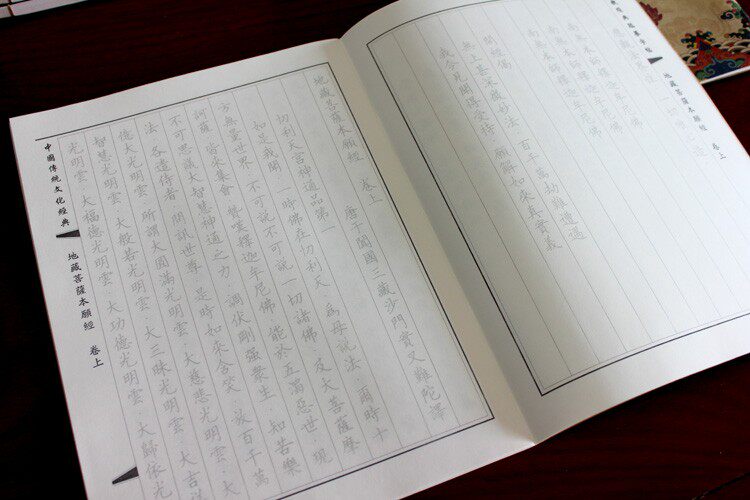 地藏菩薩本願經 卷上
南無本師釋迦牟尼佛
南無本師釋迦牟尼佛
南無本師釋迦牟尼佛
開經偈
無上甚深微妙法·百千萬劫難遭遇
我今見聞得受持·願解如來真實義
地藏菩薩本願經 卷上 唐于闐國三藏沙門實叉難陀譯
忉利天宮神通品第一
如是我聞·一時佛在忉利天·為母說法·爾時十
方無量世界·不可說不可說一切諸佛·及大菩薩摩
訶薩·皆來集會·讚歎釋迦牟尼佛·能於五濁惡世·現
不可思議大智慧神通之力·調伏剛強衆生·知苦樂
法·各遣侍者·問訊世尊·是時如來含笑·放百千萬
億大光明雲·所謂大圓滿光明雲·大慈悲光明雲·大
智慧光明雲·大般若光明雲·大三昧光明雲·大吉
光明雲·大福德光明雲·大功德光明雲·大歸依光
中國傳統文化經典
地藏菩薩本願經 卷上